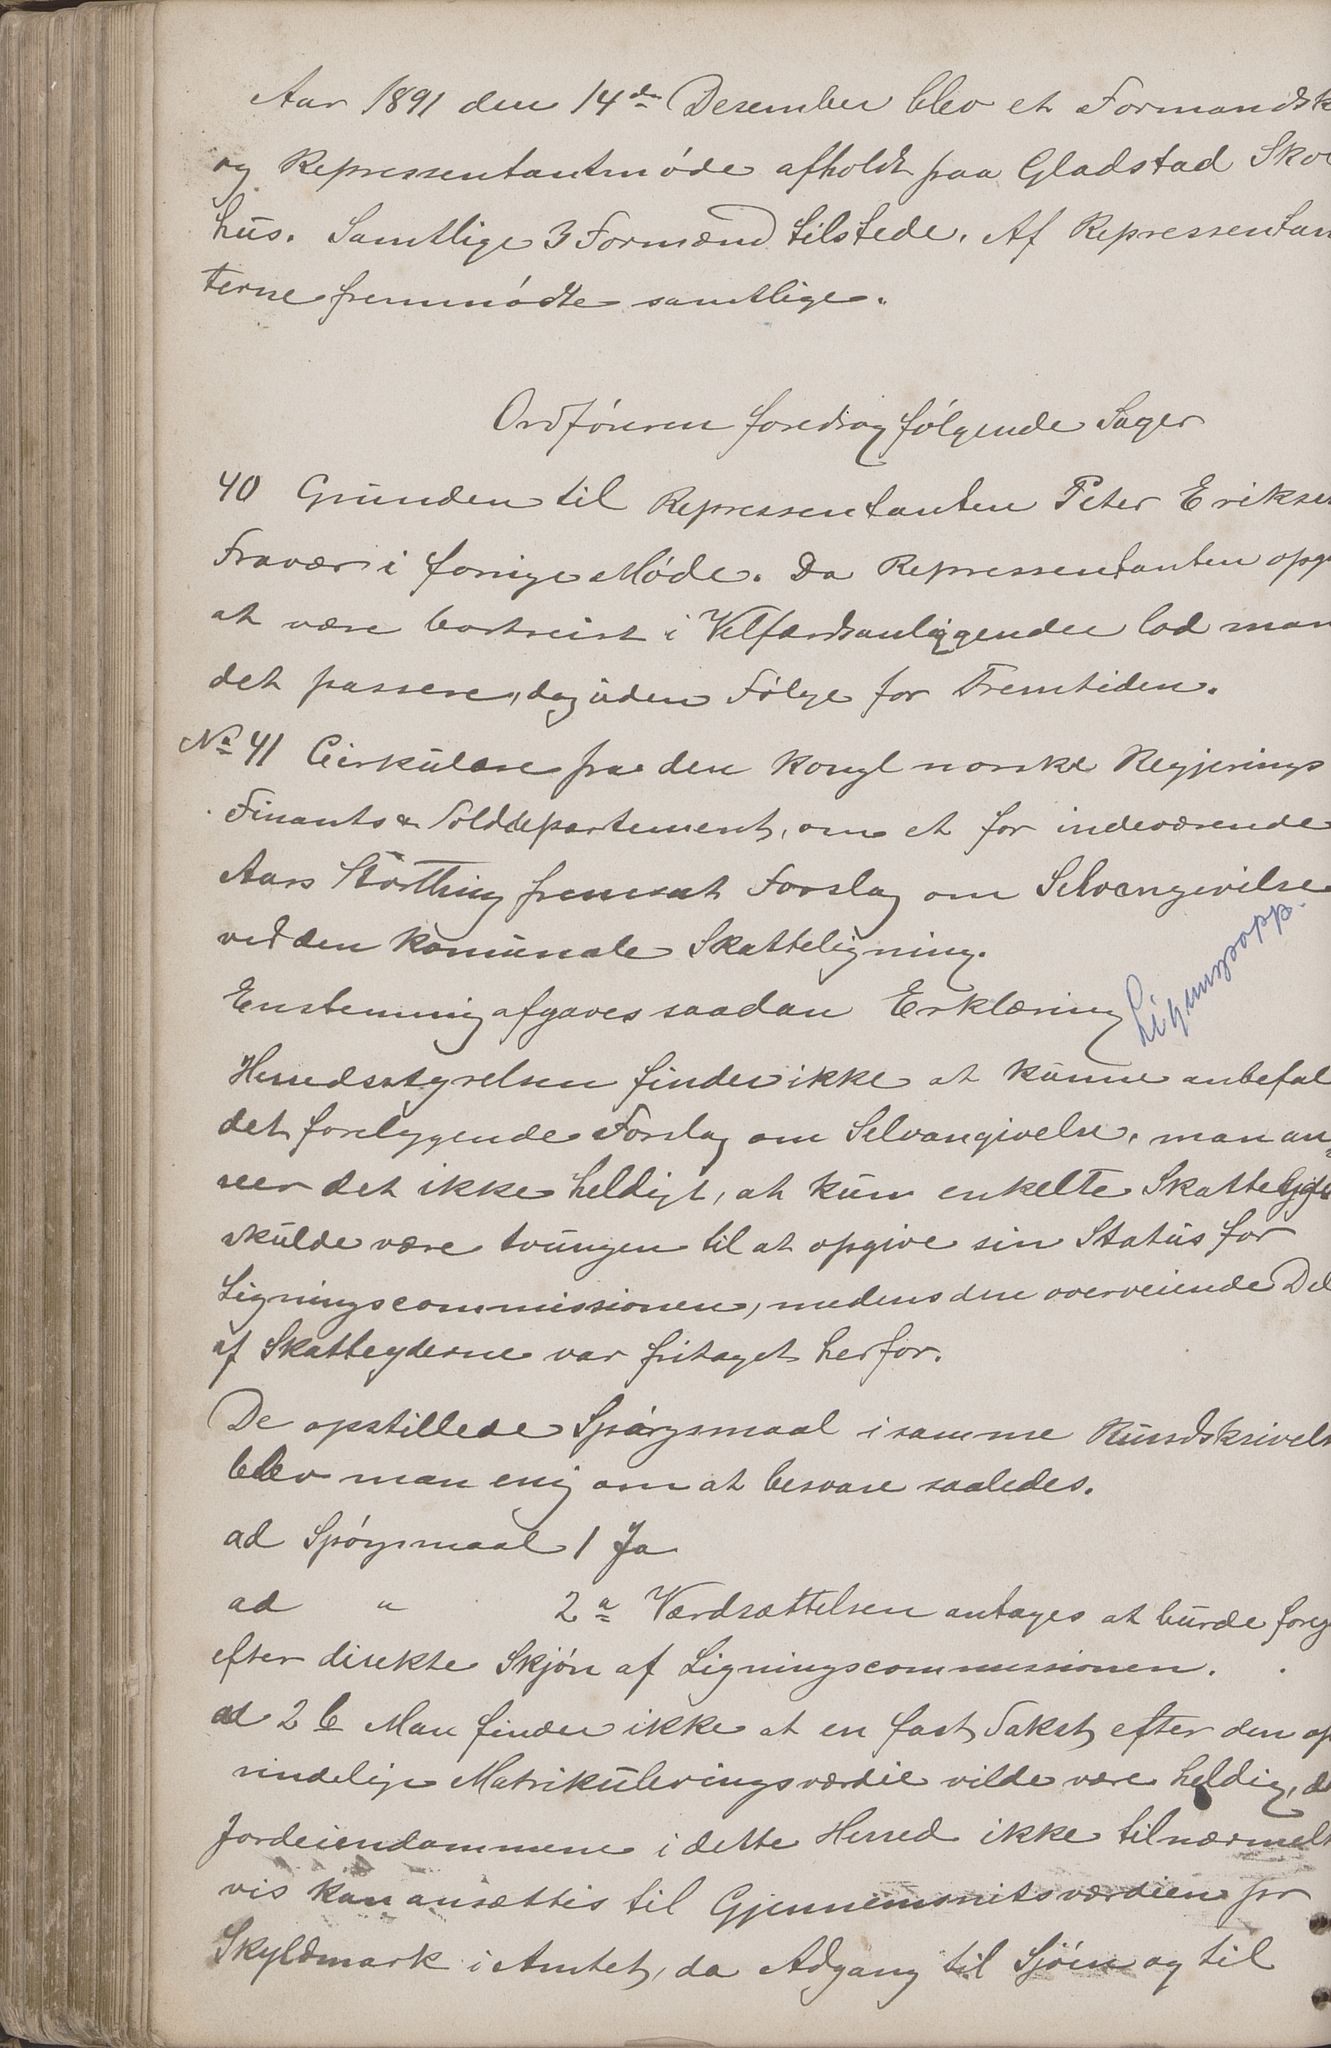 Aar 1891 den 14de Desember blev et Formandsk
og Repressentantmøde afholdt paa Gladstad Sko
hus. Samtlige 3 Formænd tilstede. Af Repressentan
terne fremmødte samtlige.
Ordføreren foredrog følgende Sager
40 Grunden til Repressentanten Peter Erikse
Fravær i forrige Møde. Da Repressentanten opg
at være bortreist i Velfærdsanliggender lod man
det passere, dog uden Følge for Fremtiden.
No 41 Cirkulære fra den kongl norske Regjerings
Finants & Tolddepartement, om et for indeværende
Aars Storthing fremsat Forslag om Selvangivelse
ved den komunale Skatteligning.
Ligningsopp.
Enstemmig afgaves saadan Erklæring
Herredsstyrelsen finder ikke at kunne anbefal
det forelyggende Forslag om Selvangivelse, man an-
seer det ikke heldigt, at kun enkelte Skatteyder
skulde være tvungen til at opgive sin Status for
Ligningscommissionen, medens den overveiende Del
af Skatteyderne var fritaget herfor.
De opstillede Spørgsmaal i samme Rundskrivels
blev man enig om at besvare saaledes.
ad Spørgsmaal 1 Ja
ad " 2 a Værdsættelsen antages at burde foreg
efter direkte Skjøn af Ligningscommissionen.
ad 2 b Man finder ikke at en fast Takst efter den op
rindelige Matrikuleringsværdie vilde være heldig, d
Jordeiendommene i dette Herred ikke tilnærmels
vis kan ansættes til Gjennemsnitsværdien pr
Skyldmark i Amtet, da Adgang til Sjøen og til